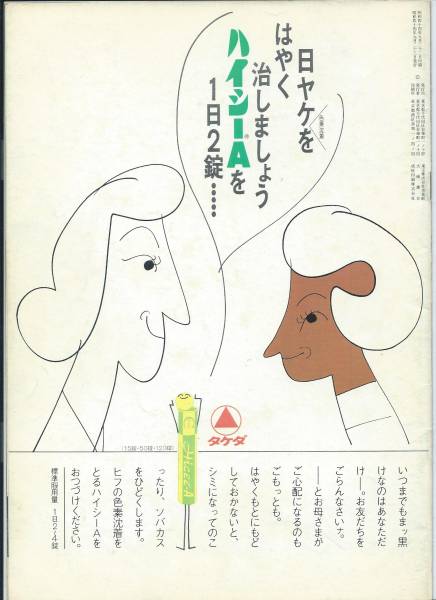 日ヤケを
色素沈着
はやく
治しましょう
ハイシーAを
1日2錠……
タケダ
(15錠・50錠・120錠)
Hicee-A
いつまでもまッ黒
けなのはあなただ
け――。お友だちを
ごらんなさいナ。
――とお母さまが
ご心配になるのも
ごもっとも。
はやくもとにもど
しておかないと、
シミになってのこ
ったり、ソバカス
をひどくします。
ヒフの色素沈着を
とるハイシーAを
おつづけください。
標準服用量 1日2~4錠